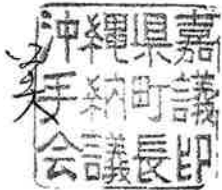 沖縄県嘉
手納町議
会議長印